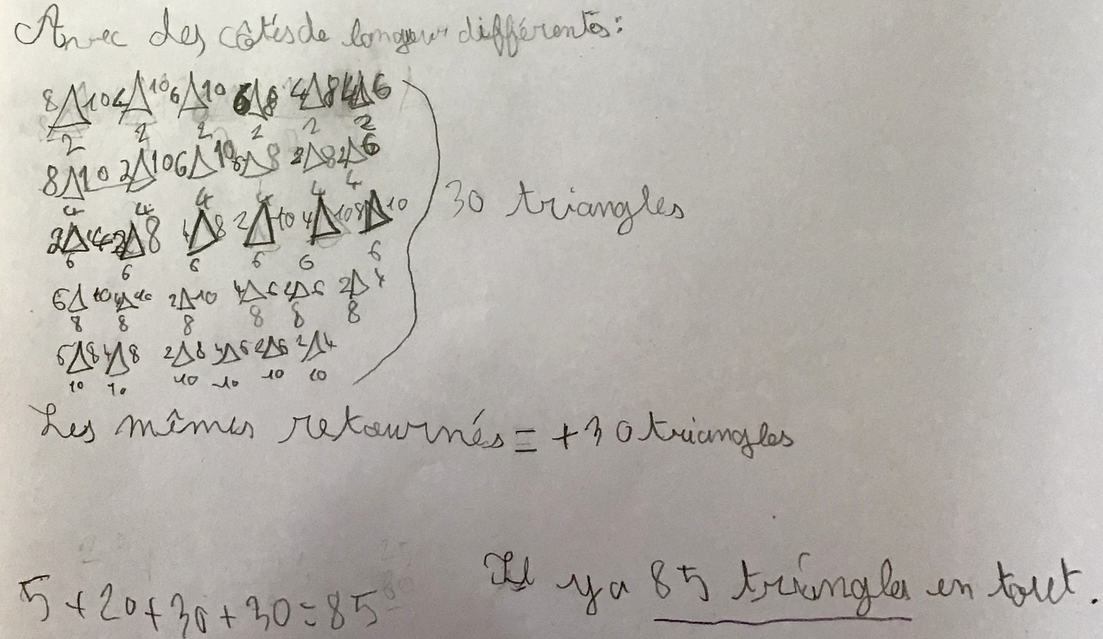 Avec des côtés de longeur différentes:
8 10 4 10 6 10 6 8 4 8 4 6
2 2 2 2 2 2
8 10 2 10 6 10 6 8 2 8 2 6
4 4 4 4 4 4
2 4 2 8 4 8 2 10 4 10 8 10
6 6 6 6 6 6
30 triangles
6 10 4 10 2 10 4 6 2 6 2 4
8 8 8 8 8 8
6 8 4 8 2 8 4 6 2 6 2 4
10 10 10 10 10 10
Les mêmes retournés = +30 triangles
5+20+30+30=85
Il y a 85 triangles en tout.